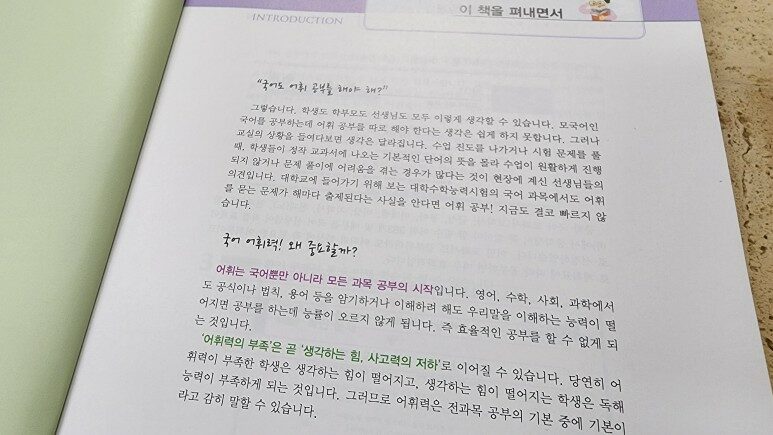 이 책을 펴내면서
INTRODUCTION
"국어도 어휘 공부를 해야 해?"
그렇습니다. 학생도 학부모도 선생님도 모두 이렇게 생각할 수 있습니다. 모국어인
국어를 공부하는데 어휘 공부를 따로 해야 한다는 생각은 쉽게 하지 못합니다. 그러나
교실의 상황을 들여다보면 생각은 달라집니다. 수업 진도를 나가거나 시험 문제를 풀
때, 학생들이 정작 교과서에 나오는 기본적인 단어의 뜻을 몰라 수업이 원활하게 진행
되지 않거나 문제 풀이에 어려움을 겪는 경우가 많다는 것이 현장에 계신 선생님들의
의견입니다. 대학교에 들어가기 위해 보는 대학수학능력시험의 국어 과목에서도 어휘
를 묻는 문제가 해마다 출제된다는 사실을 안다면 어휘 공부! 지금도 결코 빠르지 않
습니다.
국어 어휘력! 왜 중요할까?
어휘는 국어뿐만 아니라 모든 과목 공부의 시작입니다. 영어, 수학, 사회, 과학에서
도 공식이나 법칙, 용어 등을 암기하거나 이해하려 해도 우리말을 이해하는 능력이 떨
어지면 공부를 하는데 능률이 오르지 않게 됩니다. 즉 효율적인 공부를 할 수 없게 되
는 것입니다.
'어휘력의 부족'은 곧 '생각하는 힘, 사고력의 저하'로 이어질 수 있습니다. 당연히 어
휘력이 부족한 학생은 생각하는 힘이 떨어지고, 생각하는 힘이 떨어지는 학생은 독해
능력이 부족하게 되는 것입니다. 그러므로 어휘력은 전과목 공부의 기본 중에 기본이
라고 감히 말할 수 있습니다.